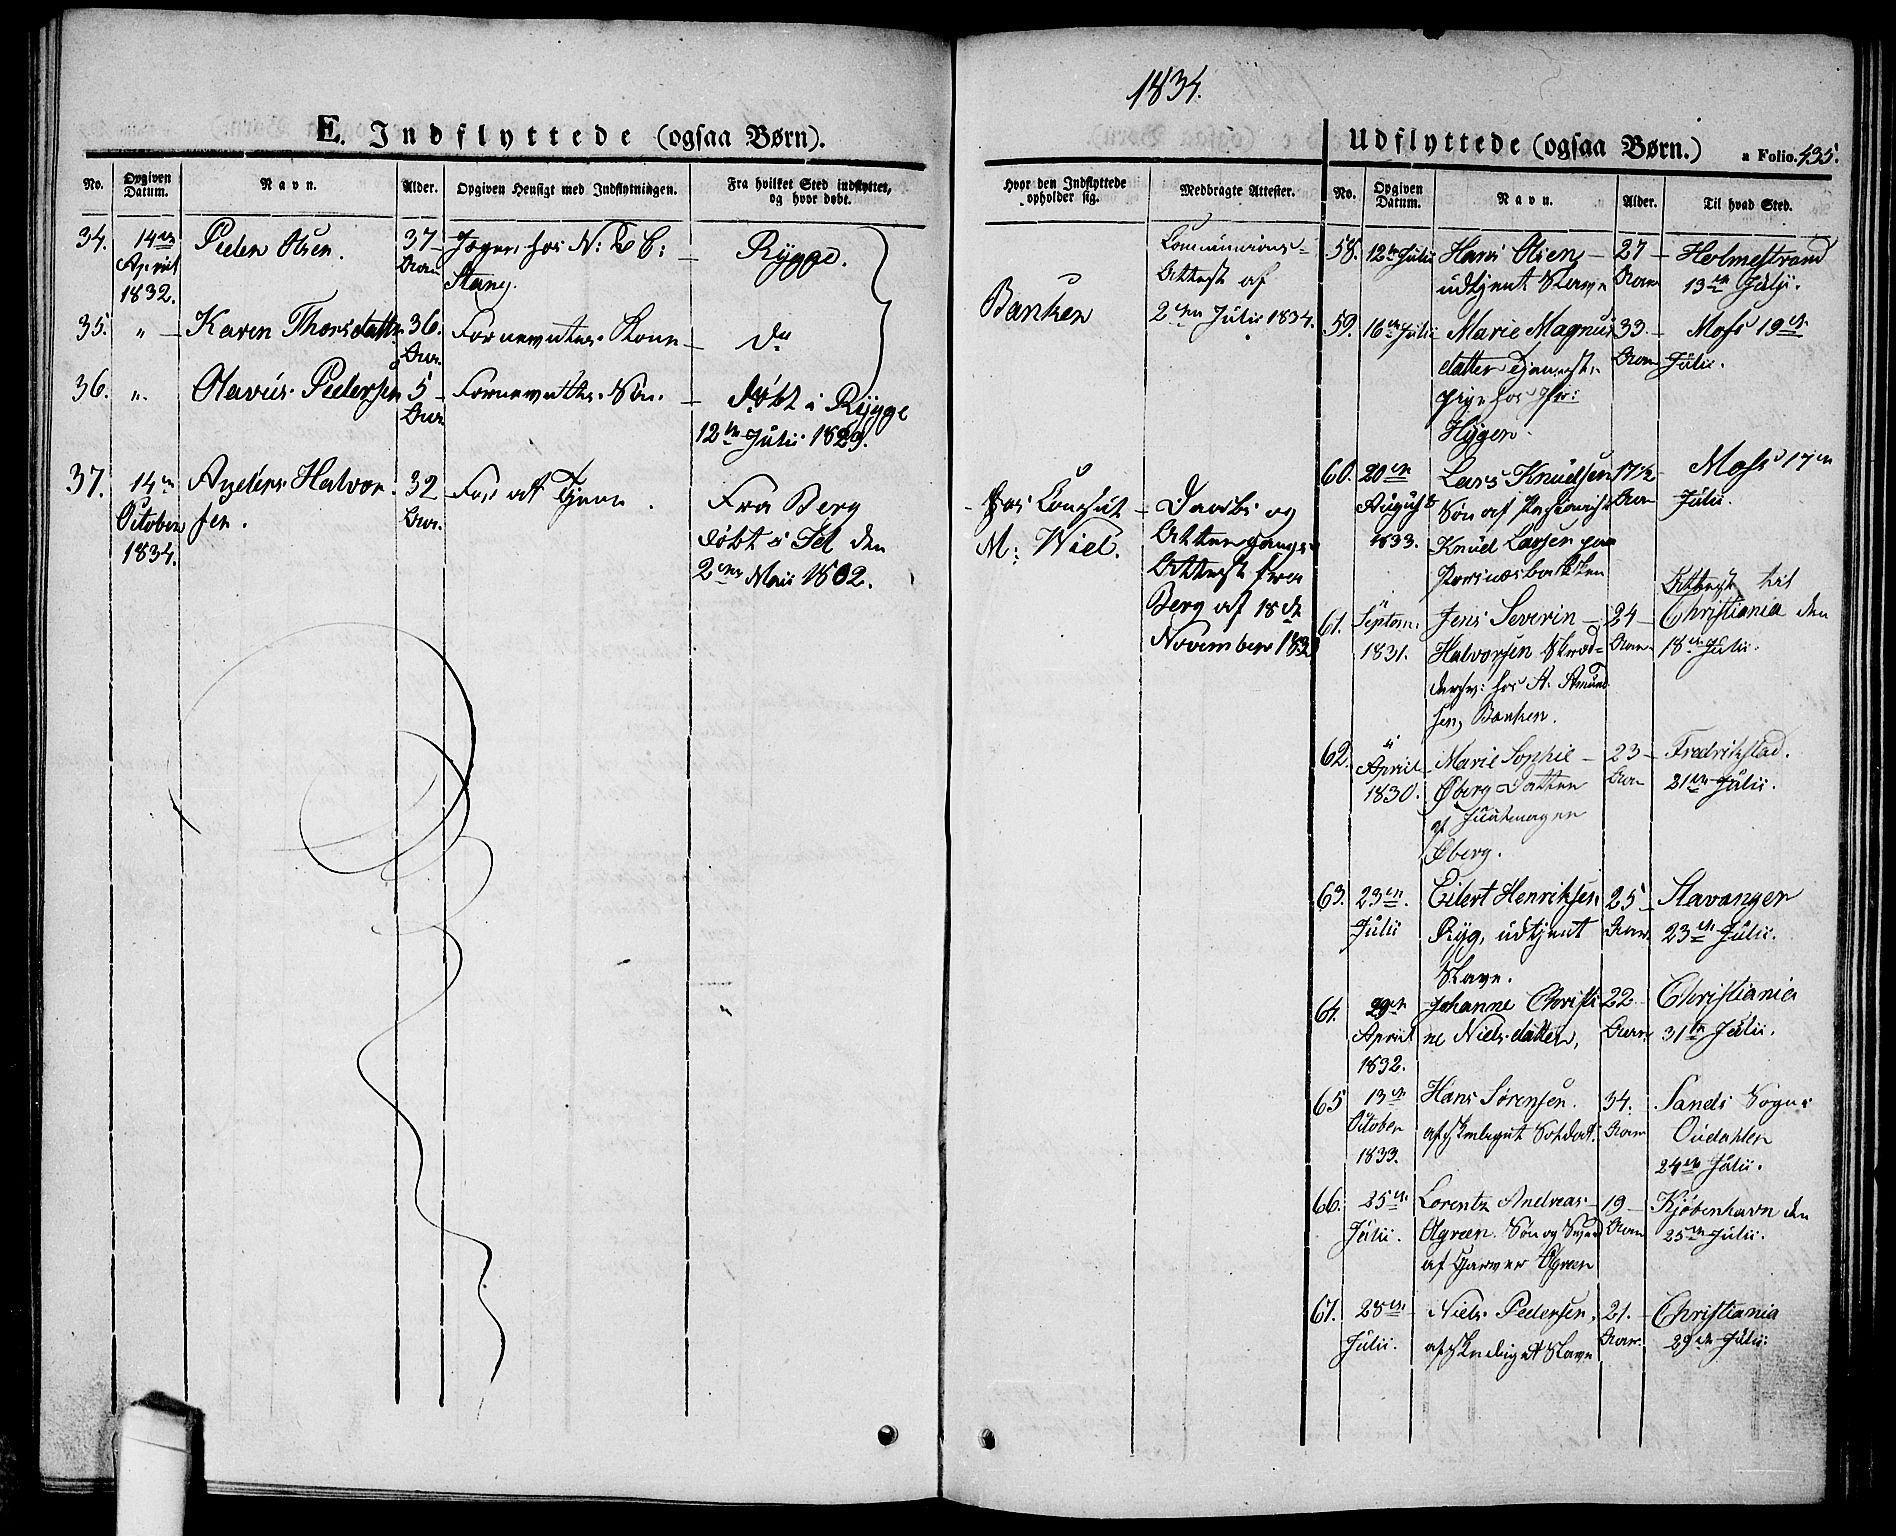 1834.
E. Indflyttede (ogsaa Børn).
No. Opgiven Datum. Navn. Alder. Opgiven Hensigt med Indflytningen. Fra hvilket Sted indflyttet, og hvor døbt.
34. 14de Peder Olsen. 37 Jæger hos N:
April Aar Stang. Rygge.
1832.
35. " Karen Thorsdatter 36. Fornevntes Kone do
Aar.
36. " Olavus Pedersen 5 Fornevnthes Søn. døbt i Rygge
Aar 12te Julii 1829.
37. 14de Anders Halvor 32 For at Tjene. Fra Berg
October sen. Aar. døbt i Id den
1834. 2den Maii 1802.
Hvor den Indflyttede opholder sig. Medbragte Attester.
Communions-
Attest af
Banken 2den Julii 1834.
Hos Consul Daabs og
M: Wiel. Altergangs
Attest fra
Berg af 18de
November 183
Udflyttede (ogsaa Børn.) a Folio. 435.
No. Opgiven Datum. Navn. Alder. Til hvad Sted.
58. 12te Julii Hans Olsen 27 Holmestrand
udtjent Slave Aar 13de Julii.
59. 16de Julii Marie Magnus 33. Moss 19de
datter Tjeneste Aar Julii.
pige hos
Hygen.
60. 20de Lars Knudsen 17½ Moss 17de
August Søn af Aar Julii.
1833. Knud Larsen paa
Attest til
61. Septem: Jens Severin 24 Christiania den
1831. Halvorsen Skræd- Aar 18de Julii.
dersv: hos A. Amund
sen, Banken.
62. " Marie Sophie 23 Fredrikstad.
April Øberg Datter Aar 21de Julii.
1830. af
Øberg.
63. 23de Eilert Henriksen 25 Stavanger
Julii Ryg, udtjent Aar. 23de Julii.
Slave.
64. 29de Johanne Christi 22 Christiania
April ne Nielsdatter, Aar. 31te Julii.
1832.
65 13de Hans Sørensen. 34. Sands Sogn i
October afskediget Soldat. Aar Oudahlen
1833. 24de Julii.
66. 25de Lorentz Andreas 19 Kjøbenhavn den
Julii. Øgreen. Søn og Svend Aar 25de Julii.
af Garver Øgreen
67. 28de Niels Pedersen, 21. Christiania
Julii. afskediget Slave Aar. 29de Julii.